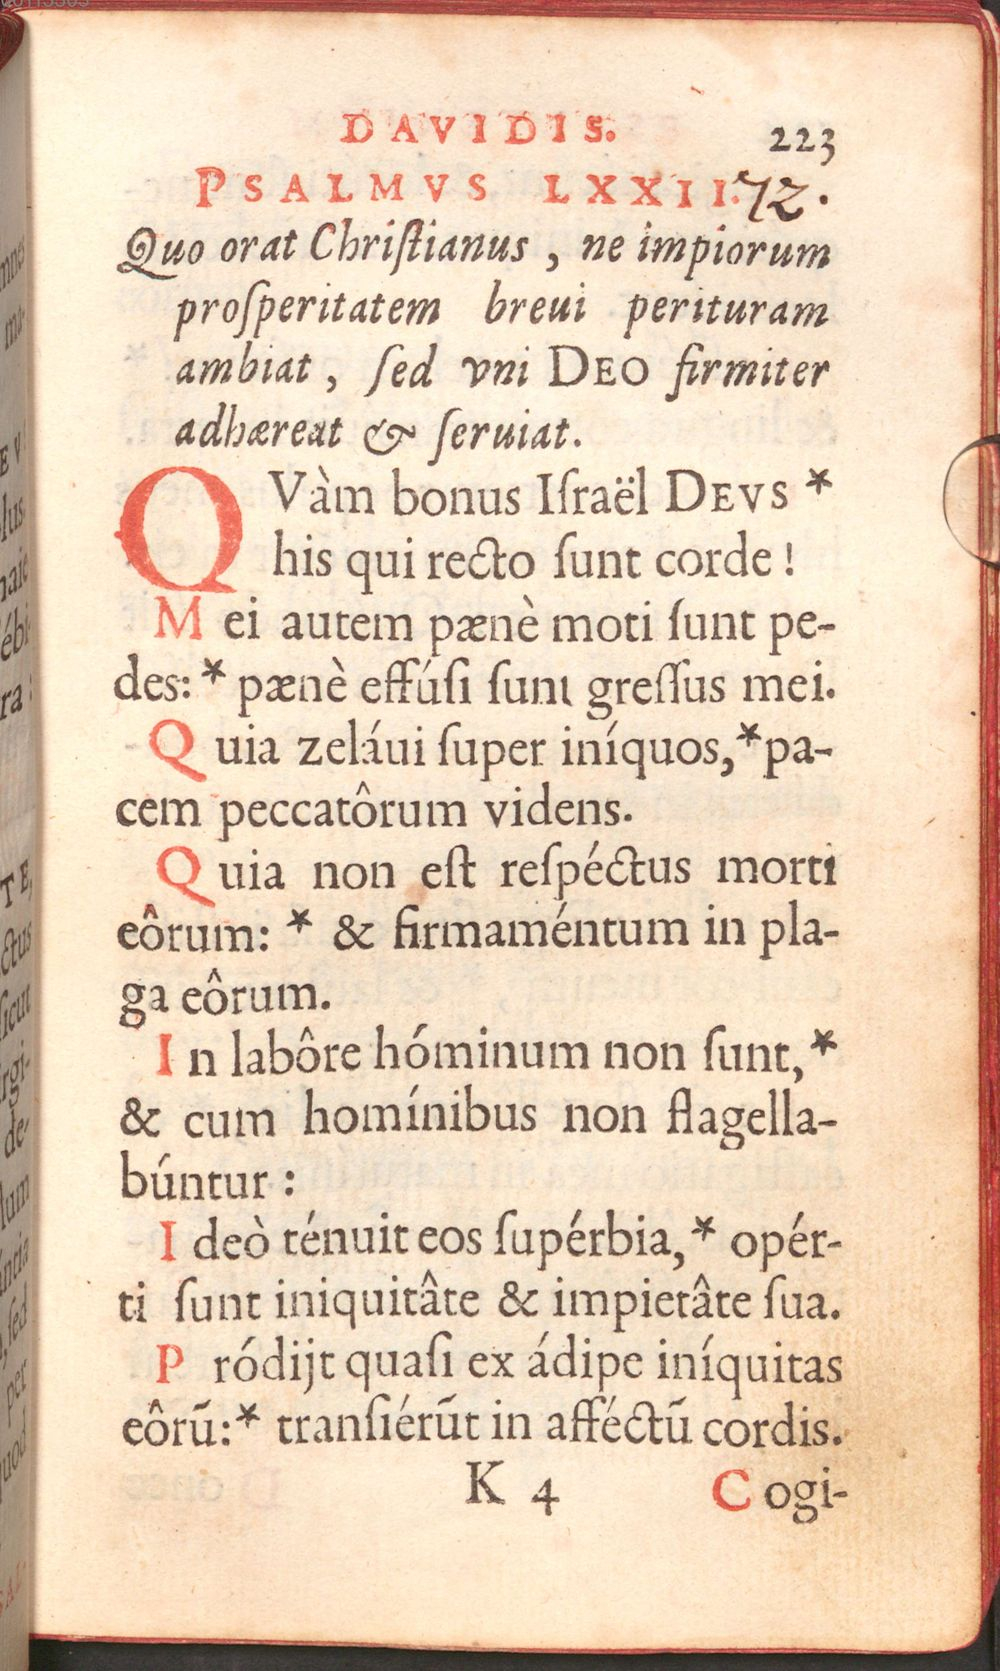 DAVIDIS.
223
PSALMVS LXXII. 72.
Quo orat Chriſtianus, ne impiorum
proſperitatem breui perituram
ambiat, ſed vni DEO firmiter
adhæreat & ſeruiat.
QVàm bonus Iſraël DEVS *
his qui recto ſunt corde!
Mei autem pænè moti ſunt pe-
des: * pænè effúſi ſunt greſſus mei.
Quia zeláui ſuper iníquos,* pa-
cem peccatôrum videns.
Quia non eſt reſpéctus morti
eôrum: * & firmaméntum in pla-
ga eôrum.
In labôre hóminum non ſunt,*
& cum homínibus non flagella-
búntur:
Ideò ténuit eos ſupérbia,* opér-
ti ſunt iniquitâte & impietâte ſua.
Pródijt quaſi ex ádipe iníquitas
eôrū:* tranſiérūt in afféctū cordis.
K 4
Cogi-